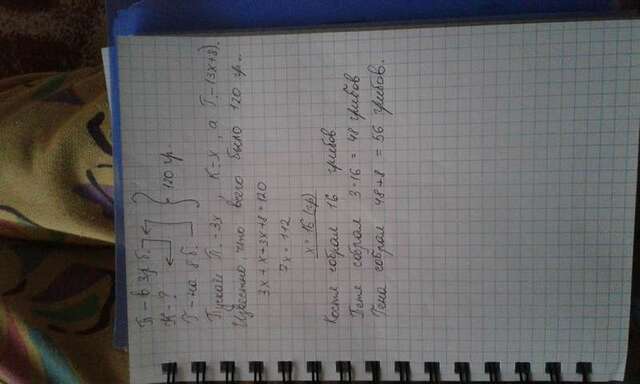 П - в 3р б.
К - ?
Г - на 8 б.
} 120 гр.
Пускай П. - 3x, К = x, а Г - (3x+8).
Известно, что всего было 120 гр.
3x + x + 3x + 8 = 120
7x = 112
x = 16 (гр)
Костя собрал 16 грибов
Петя собрал 3·16 = 48 грибов
Гена собрал 48+8 = 56 грибов.